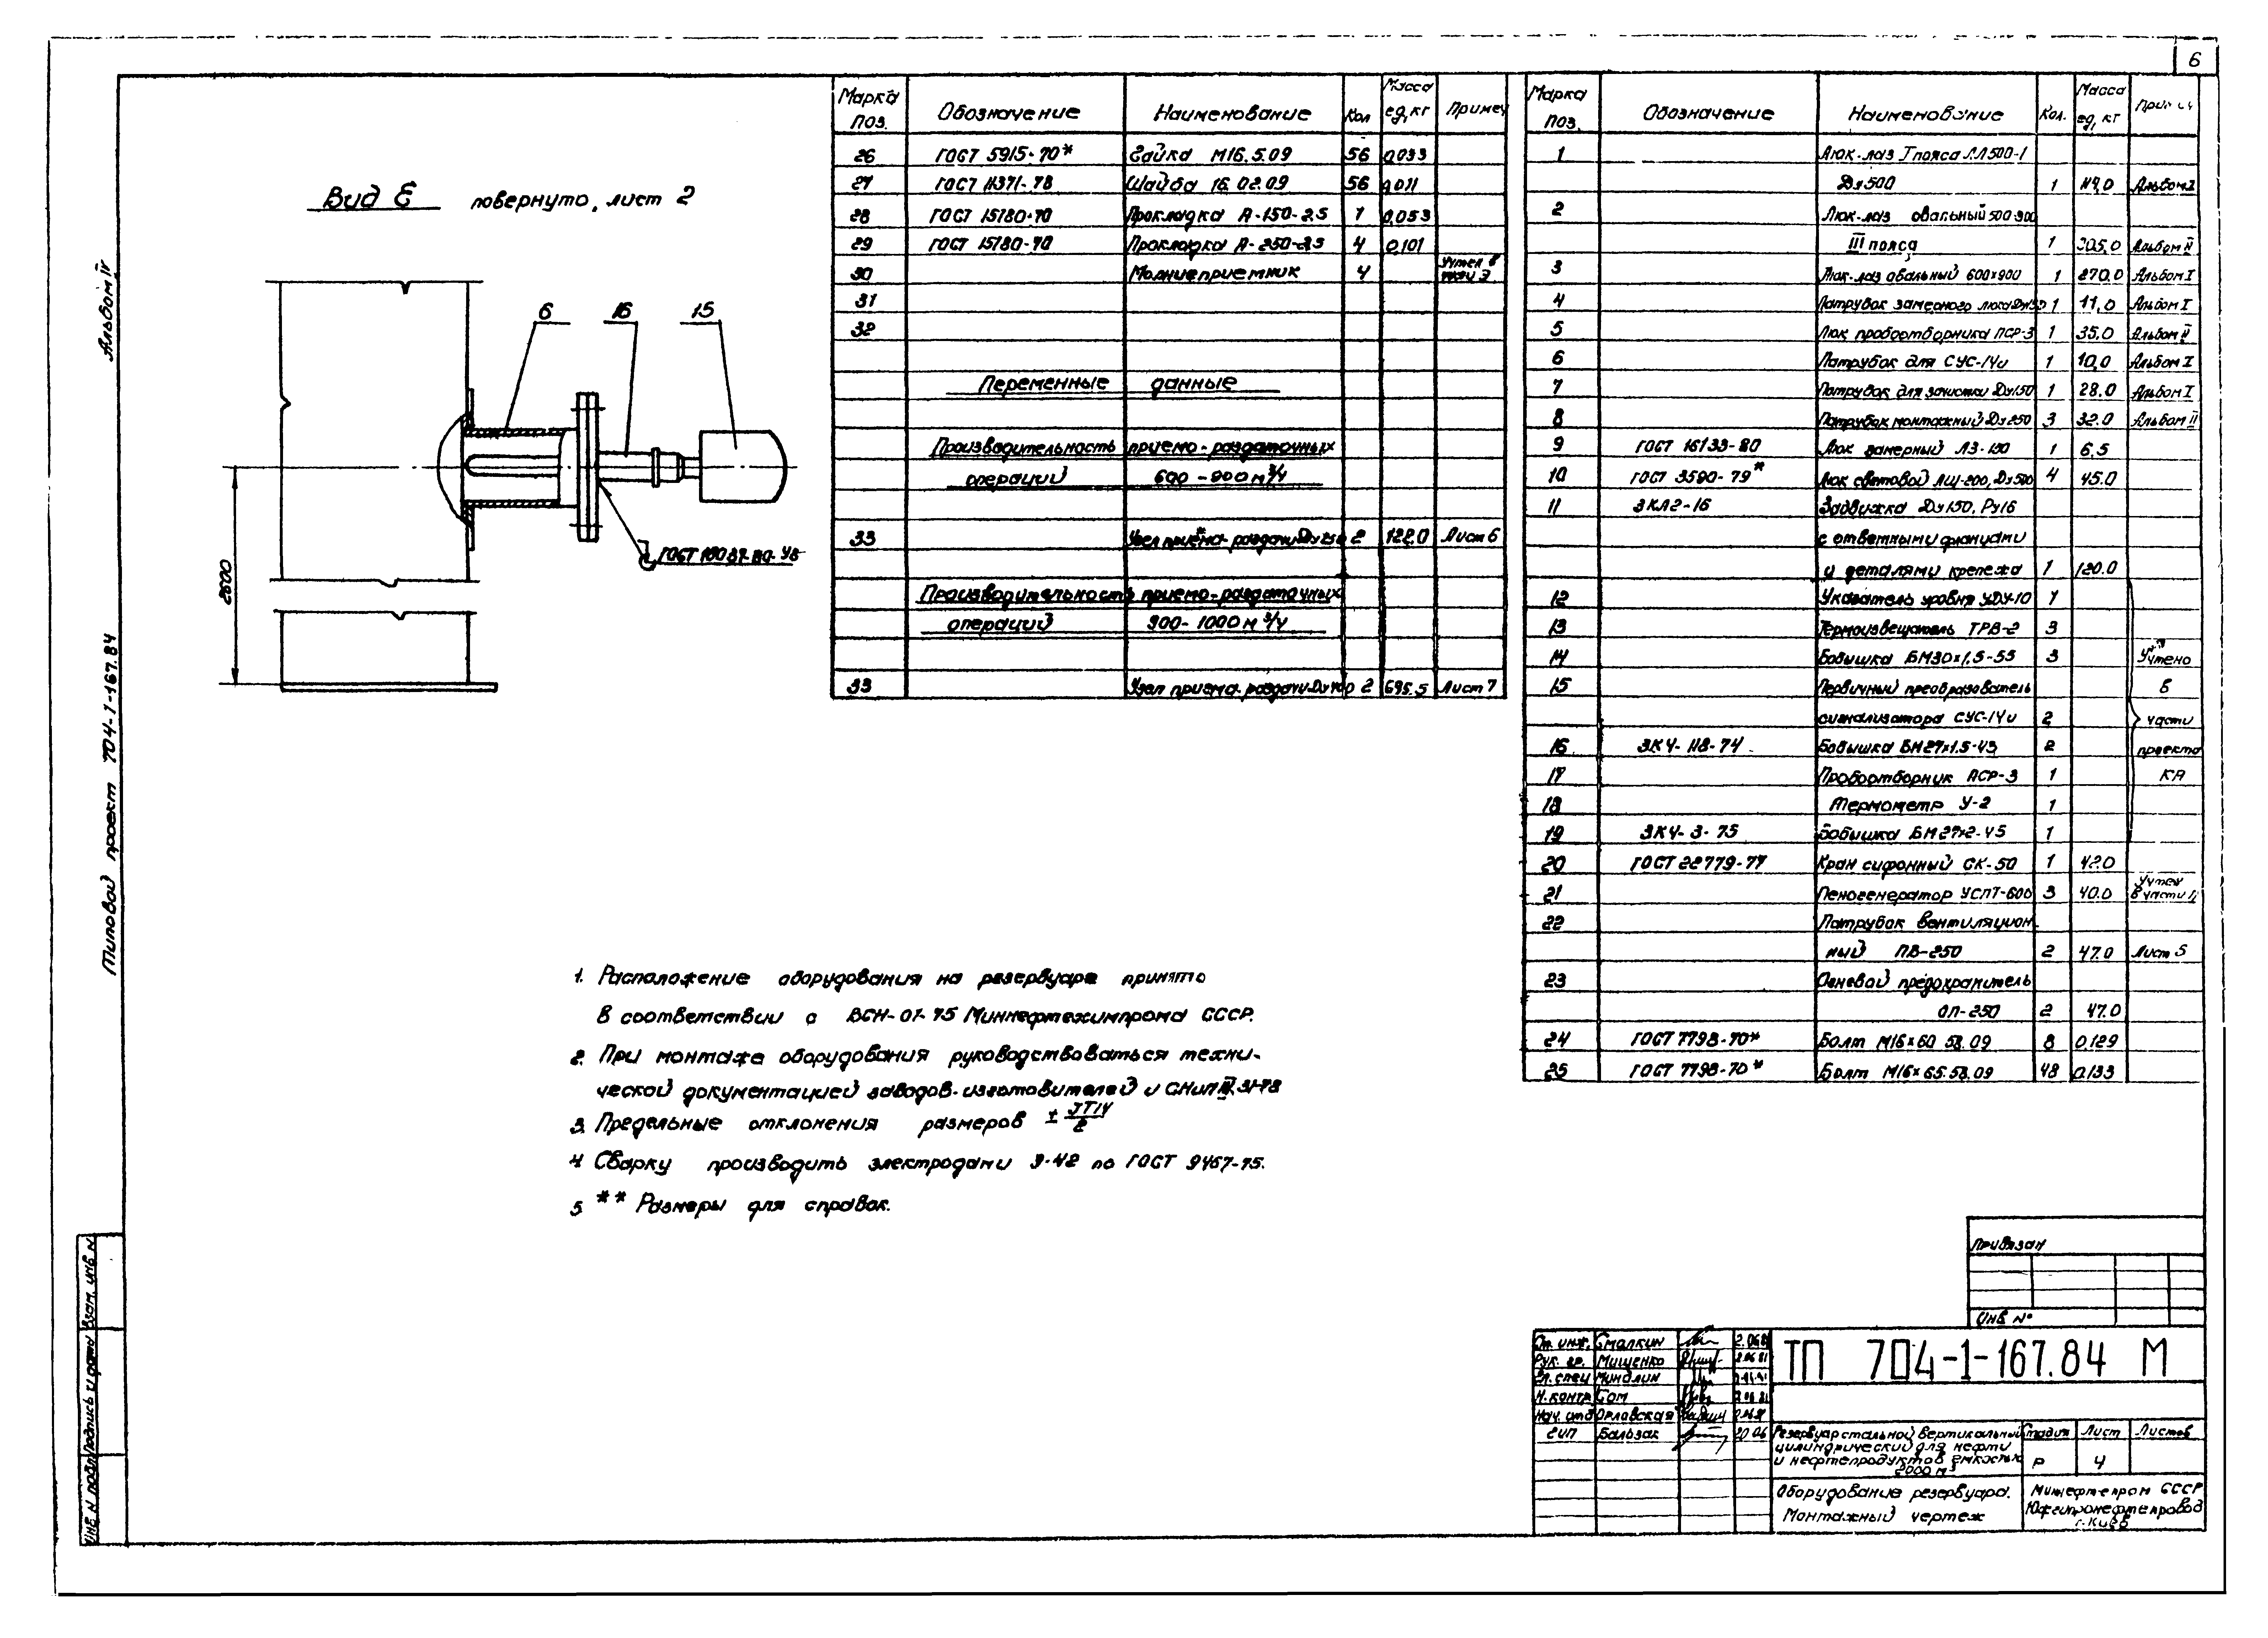 6
Альбом IV
Типовой проект 704-1-167.84
Вид Е повернуто, лист 2
6 16 15
2600
Марка поз. Обозначение Наименование Кол Масса ед, кг Примеч
26 ГОСТ 5915-70* Гайка М16.5.09 56 0,033
27 ГОСТ 11371-78 Шайба 16.02.09 56 0,011
28 ГОСТ 15180-70 Прокладка А-150-2,5 1 0,053
29 ГОСТ 15180-70 Прокладка А-250-2,5 4 0,101
30 Молниеприемник 4
31
32
Переменные данные
Производительность приемо-раздаточных
операций 600-900 м³/ч
33 Узел приема-раздачи Ду 250 2 122.0 Лист 6
Производительность приемо-раздаточных
операций 900-1000 м³/ч
33 Узел приема-раздачи Ду 400 2 695.5 Лист 7
Марка поз. Обозначение Наименование Кол. Масса ед, кг
1 Люк-лаз I пояса ЛЛ500-1
Ду500 1 Альбом I
2 Люк-лаз овальный
III пояса 1 305,0 Альбом II
3 Люк-лаз овальный 600х900 1 270.0 Альбом I
4 Патрубок замерного люка Ду150 1 11,0 Альбом I
5 Люк пробоотборника ПСР-3 1 35.0 Альбом II
6 Патрубок для СУС-14и 1 10,0 Альбом I
7 Патрубок для зачистки Ду150 1 28.0 Альбом I
8 Патрубок монтажный Ду250 3 32.0 Альбом II
9 ГОСТ 16133-80 Люк замерный ЛЗ-150 1 6,5
10 ГОСТ 3590-79* Люк световой Ду500 4 45.0
11 ЗКЛ2-16 Задвижка Ду150, Ру16
с ответными фланцами
и деталями крепежа 1 120.0
12 Указатель уровня УДУ-10 1
13 Термоизвещатель ТРВ-2 3
14 Бобышка БМ30х1,5-55 3 Учтено
15 Первичный преобразователь в
сигнализатора СУС-14и 2 части
16 ЗК4-118-74 Бобышка БМ27х1.5-43 2 проекта
17 Пробоотборник ПСР-3 1 КА
18 Термометр У-2 1
19 ЗК4-3-75 Бобышка БМ27х2-45 1
20 ГОСТ 22779-77 Кран сифонный СК-50 1 42.0
21 Пеногенератор УСПТ-600 3 40.0 Учтен в части
22 Патрубок вентиляцион
ный ПВ-250 2 47.0 Лист 5
23 Огневой предохранитель
ОП-250 2 47.0
24 ГОСТ 7798-70* Болт М16х60 58.09 8 0.129
25 ГОСТ 7798-70* Болт М16х65.58.09 48 0.133
1. Расположение оборудования на резервуаре принято
в соответствии с ВСН-01-75 Миннефтехимпрома СССР.
2. При монтаже оборудования руководствоваться техни-
ческой документацией заводов-изготовителей и СНиП III.31-78
3. Предельные отклонения размеров ± JT14/2
4 Сварку производить электродами Э-42 по ГОСТ 9467-75.
5 ** Размеры для справок.
Привязан
Инв №
Взам. инв N
Подпись и дата
Инв N подл
Ст. инж. Смалкин
Рук. гр. Мищенко
Гл. спец Миндлин
Н. контр Сом
Нач. отд Орловская
ГИП Бальзак
ТП 704-1-167.84 М
Резервуар стальной вертикальный
цилиндрический для нефти
и нефтепродуктов емкостью
2000 м³
Стадия Лист Листов
Р 4
Оборудование резервуара.
Монтажный чертеж
Миннефтепром СССР
Южгипронефтепровод
г. Киев